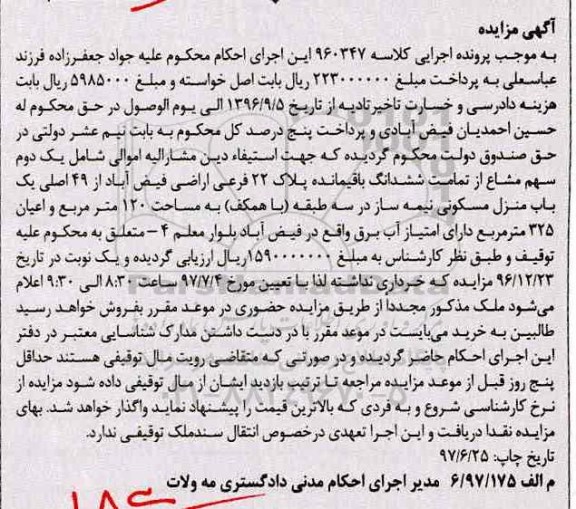 آگهی مزایده
به موجب پرونده اجرایی کلاسه ۹۶۰۳۴۷ این اجرای احکام محکوم علیه جواد جعفرزاده فرزند
عباسعلی به پرداخت مبلغ ۲۲۳۰۰۰۰۰۰ ریال بابت اصل خواسته و مبلغ ۵۹۸۵۰۰۰ ریال بابت
هزینه دادرسی و خسارت تاخیرتادیه از تاریخ ۱۳۹۶/۹/۵ الی یوم الوصول در حق محکوم له
حسین احمدیان فیض آبادی و پرداخت پنج درصد کل محکوم به بابت نیم عشر دولتی در
حق صندوق دولت محکوم گردیده که جهت استیفاء دین مشارالیه اموالی شامل یک دوم
سهم مشاع از تمامت ششدانگ باقیمانده پلاک ۲۲ فرعی اراضی فیض آباد از ۴۹ اصلی یک
باب منزل مسکونی نیمه ساز در سه طبقه (با همکف) به مساحت ۱۲۰ متر مربع و اعیان
۳۲۵ مترمربع دارای امتیاز آب برق واقع در فیض آباد بلوار معلم ۴ – متعلق به محکوم علیه
توقیف و طبق نظر کارشناس به مبلغ ۱۵۹۰۰۰۰۰۰۰ریال ارزیابی گردیده و یک نوبت در تاریخ
۹۶/۱۲/۲۳ مزایده که خرداری نداشته لذا با تعیین مورخ ۹۷/۷/۴ ساعت ۸:۳۰ الی ۹:۳۰ اعلام
می‌شود ملک مذکور مجددا از طریق مزایده حضوری در موعد مقرر بفروش خواهد رسید
طالبین به خرید می‌بایست در موعد مقرر با در دست داشتن مدارک شناسایی معتبر در دفتر
این اجرای احکام حاضر گردیده و در صورتی که متقاضی رویت مال توقیفی هستند حداقل
پنج روز قبل از موعد مزایده مراجعه تا ترتیب بازدید ایشان از مال توقیفی داده شود مزایده از
نرخ کارشناسی شروع و به فردی که بالاترین قیمت را پیشنهاد نماید واگذار خواهد شد. بهای
مزایده نقدا دریافت و این اجرا تعهدی درخصوص انتقال سندملک توقیفی ندارد.
تاریخ چاپ: ۹۷/۶/۲۵
م الف ۶/۹۷/۱۷۵ مدیر اجرای احکام مدنی دادگستری مه ولات